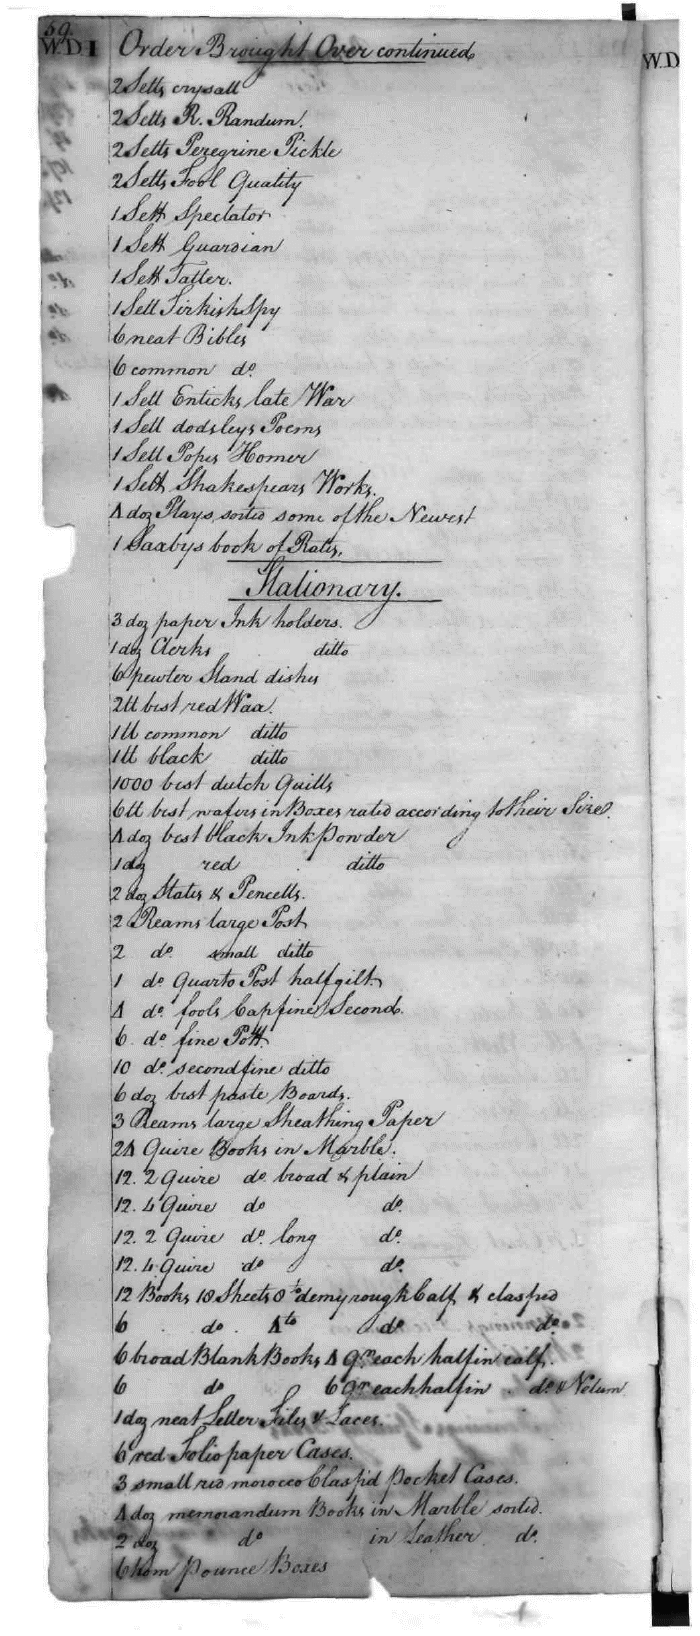 59.
W.D I Order Brought Over continued
W.D
2 Setts crysall
2 Setts R. Randum.
2 Setts Peregrine Pickle
2 Setts Fool Quality
1 Sett Spectator
1 Sett Guardian
1 Sett Tatler.
1 Sett Tirkish Spy
6 neat Bibles
6 common do.
1 Sett Enticks late War
1 Sett dodsleys Poems
1 Sett Popes Homer
1 Sett Shakespears Works.
4 doz Plays, sorted some of the Newest
1 Saxbys book of Rates.
Stationary.
3 doz paper Ink holders.
1 doz Clerks ditto
6 pewter Stand dishes
2 tt best red Wax.
1 tt common ditto
1 tt black ditto
1000 best dutch Quills
6 tt best wafers in Boxes rated according to their Size.
4 doz best black Ink Powder
1 doz red ditto
2 doz Slates & Pencells.
2 Reams large Post
2 do. small ditto
1 do. Quarto Post half gilt
4 do. fools Cap fine Second.
6 do. fine Pott.
10 do. second fine ditto
6 doz best paste Boards.
3 Reams large Sheathing Paper
24 Quire Books in Marble.
12. 2 Quire do. broad & plain
12. 4 Quire do do.
12. 2 Quire do. long do.
12. 4 Quire do do.
12 Books 18 Sheets 8vo demy rough Calf & clasped
6 do. 4to do do.
6 broad Blank Books 4 qr. each half in calf.
6 do 6 qr each half in do. & Velum
1 doz neat Letter Files & Laces.
6 red Folio paper Cases.
3 small red morocco Clasp'd Pocket Cases.
4 doz memorandum Books in Marble sorted.
2 doz do in Leather do.
6 horn Pounce Boxes